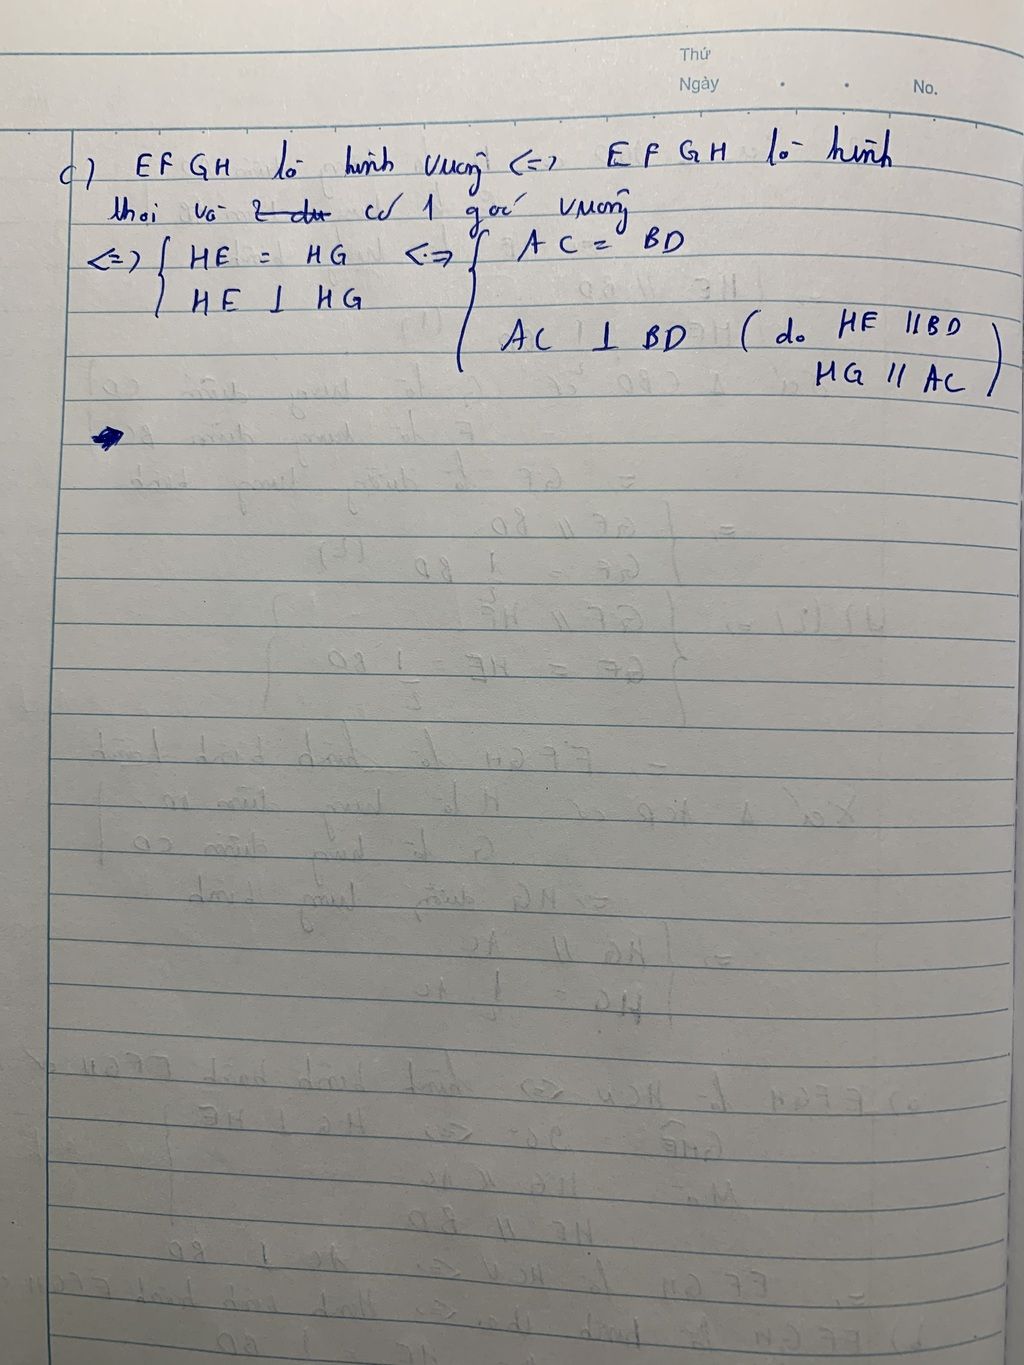 Thứ
Ngày . . No.
c) EFGH là hình vuông <=> EFGH là hình
thoi và có 1 góc vuông
<=> { HE = HG <=> { AC = BD
HE ⊥ HG
AC ⊥ BD ( do HE // BD
HG // AC )